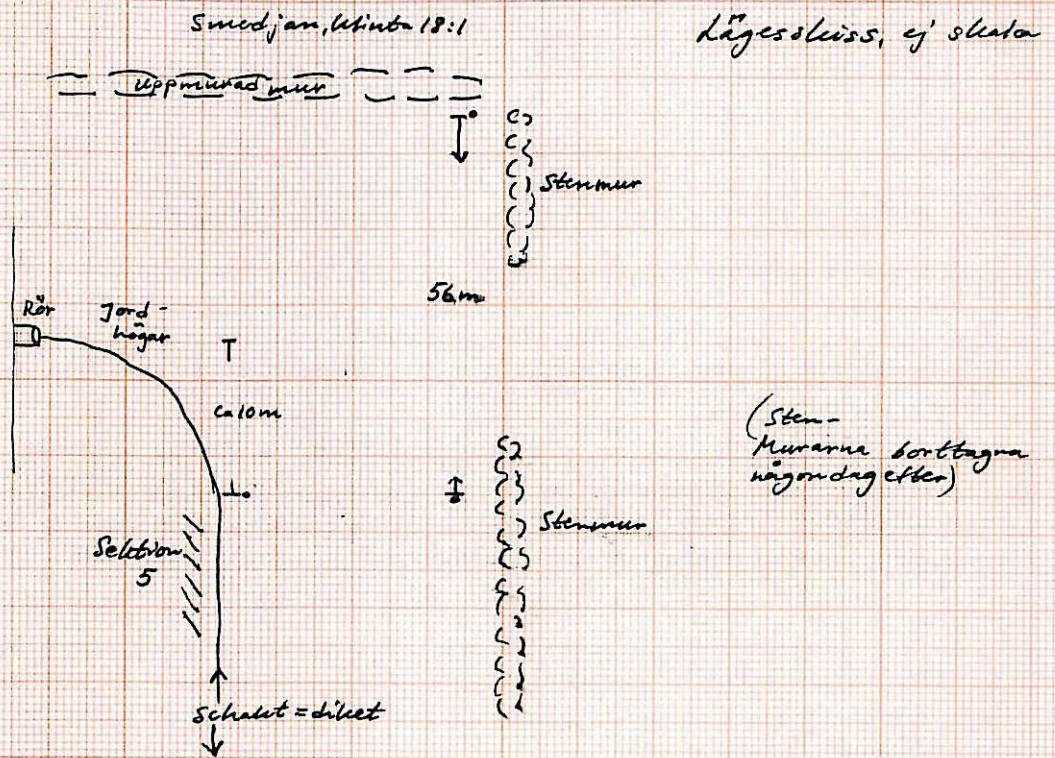 Smedjan, Klinta 18:1
Lägesskiss, ej skala
uppmurad mur
Stenmur
56 m
Rör
Jord-
högar
ca 10 m
(Sten-
Murarna borttagna
någon dag efter)
Stenmur
Sektion
5
Schakt = diket